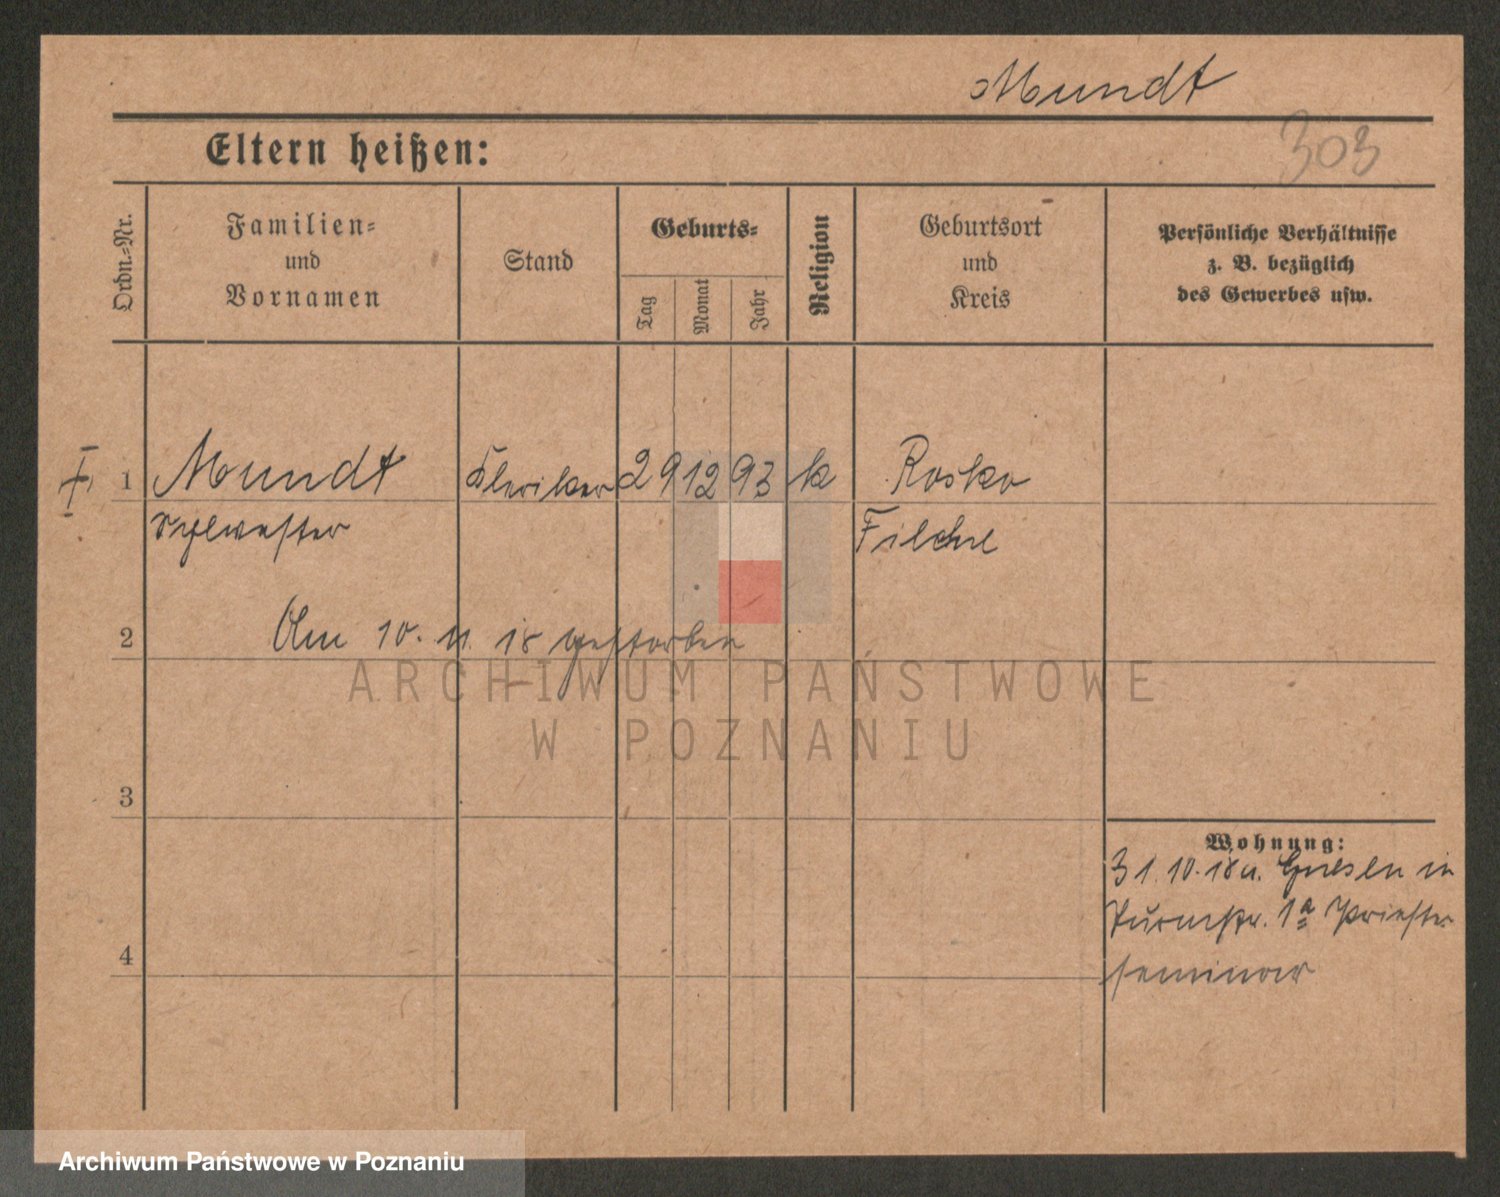 Mundt
303
Eltern heißen:
Ordn.-Nr.
Familien-
und
Vornamen
Stand
Geburts-
Tag
Monat
Jahr
Religion
Geburtsort
und
Kreis
Persönliche Verhältnisse
z. B. bezüglich
des Gewerbes usw.
1 Mundt Kleriker 29 12 93 k Rosko
Sylvester Filehne
2 Am 10. 11. 18 gestorben
ARCHIWUM PAŃSTWOWE
W POZNANIU
3
Wohnung:
31.10.18 Gnesen in
1a Priester
4 seminar
Archiwum Państwowe w Poznaniu